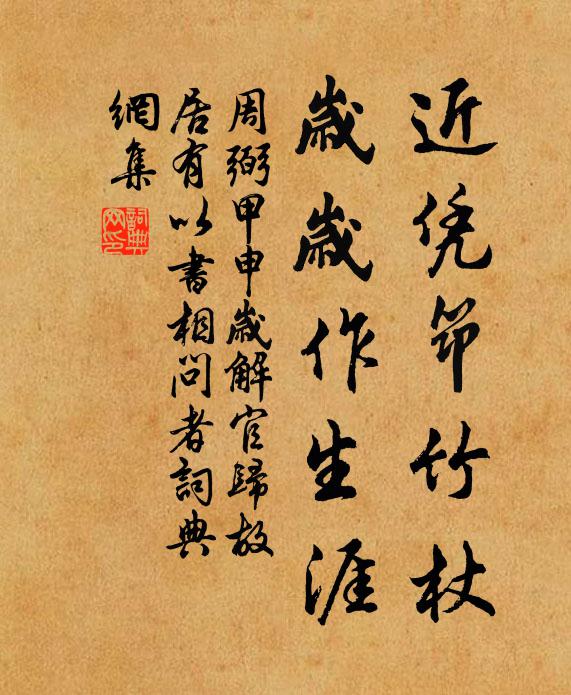 近凭筇竹杖
歲歲作生涯
周弼甲申歲解官歸故
居有以書相問者詞典
網集
詞典網印